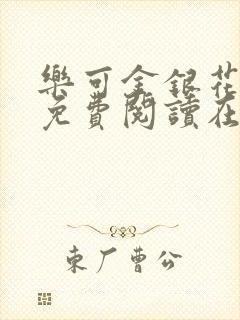 樂可金銀花
免費閱讀在
東厂曹公